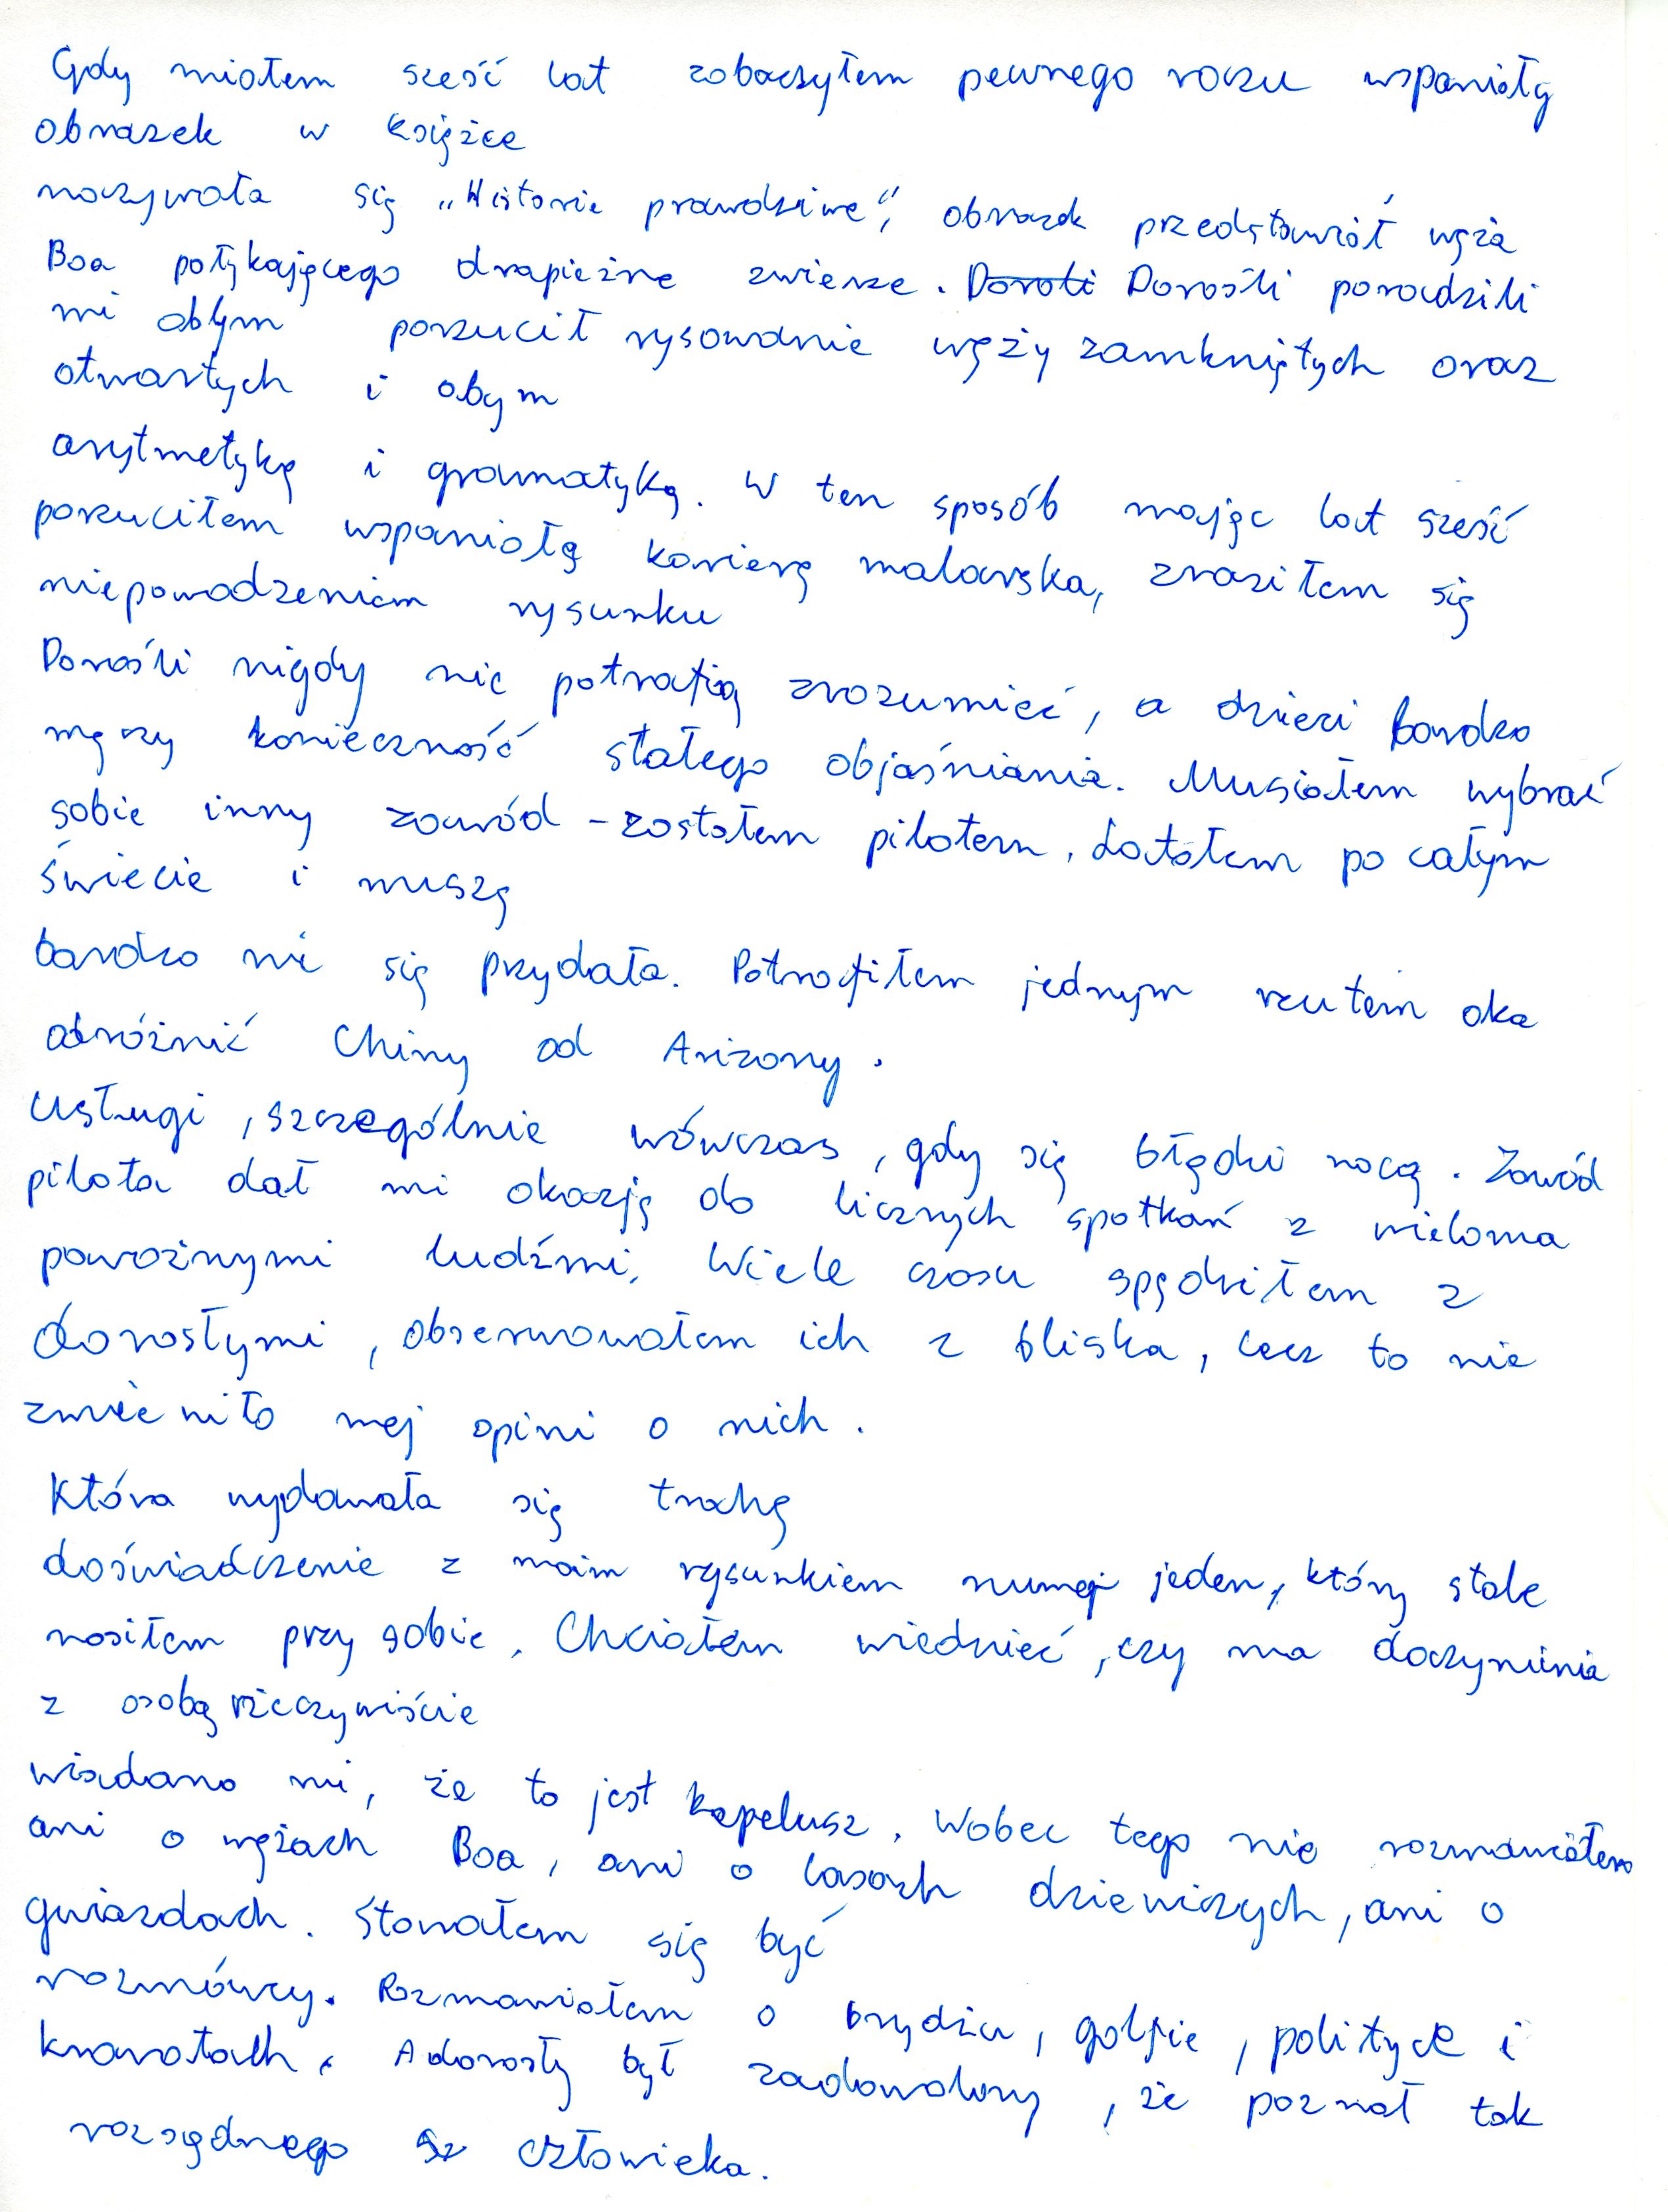 Gdy miałem sześć lat zobaczyłem pewnego razu wspaniały
obrazek w książce
nazywała się „Historie prawdziwe", obrazek przedstawiał węża
Boa połykającego drapieżne zwierze. Doroli Dorośli poradzili
mi abym porzucił rysowanie węży zamkniętych oraz
otwartych i abym
arytmetykę i gramatyką. W ten sposób mając lat sześć
porzuciłem wspaniałą karierę malarska, zraziłem się
niepowodzeniem rysunku
Dorośli nigdy nie potrafią zrozumieć, a dzieci bardzo
męczy konieczność stałego objaśniania. Musiałem wybrać
sobie inny zawód - zostałem pilotem. Latałem po całym
świecie i muszę
bardzo mi się przydała. Potrafiłem jednym rzutem oka
odróżnić Chiny od Arizony.
usługi, szczególnie wówczas, gdy się błądzi nocą. Zawód
pilota dał mi okazję do licznych spotkań z wieloma
poważnymi ludźmi. Wiele czasu spędziłem z
dorosłymi, obserwowałem ich z bliska, lecz to nie
zmieniło mej opini o nich.
Która wydawała się trochę
doświadczenie z moim rysunkiem numer jeden, który stale
nosiłem przy sobie. Chciałem wiedzieć, czy ma doczynienia
z osobą rzeczywiście
wiadano mi, że to jest kapelusz. Wobec tego nie rozmawiałem
ani o wężach Boa, ani o lasach dziewiczych, ani o
gwiazdach. Starałem się być
rozmówcy. Rozmawiałem o brydżu, golfie, polityce i
krawatach. A dorosły był zadowolony, że poznał tak
rozsądnego człowieka.